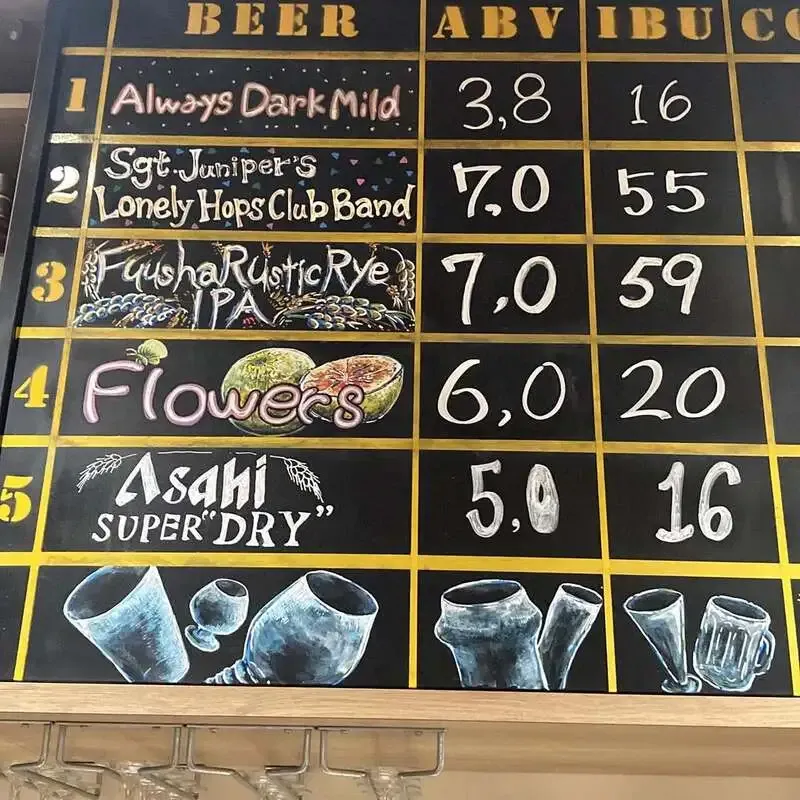 BEER ABV IBU
1 Always Dark Mild 3,8 16
2 Sgt. Juniper's
Lonely Hops Club Band 7.0 55
3 Fuusha Rustic Rye
IPA 7,0 59
4 Flowers 6,0 20
5 Asahi
SUPER "DRY" 5,0 16